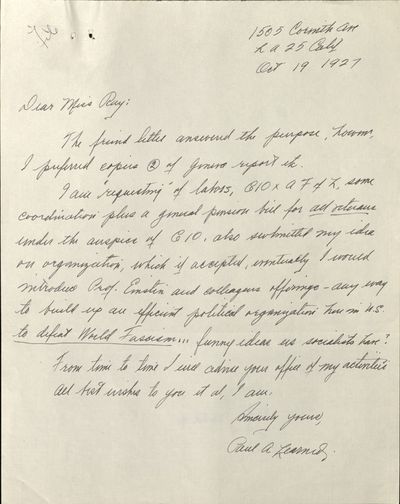 1505 Corinth Ave
L A 25 Calif
Oct 19 1927
Dear Miss Ray:
The friend letter answered the purpose, however,
I preferred copies ② of Geneva report etc.
I am "requesting" of labors, CIO & A F of L, some
coordination plus a general pension bill for all veterans
under the auspice of CIO, also submitted my idea
on organization, which if accepted, eventually I would
introduce Prof. Einstein and colleagues offerings - any way
to build up an efficient political organization here in U.S.
to defeat World Fascism... funny ideas us socialists have?
From time to time I will advise your office of my activities
All best wishes to you et al, I am.
Sincerely yours,
Paul A. Learned.